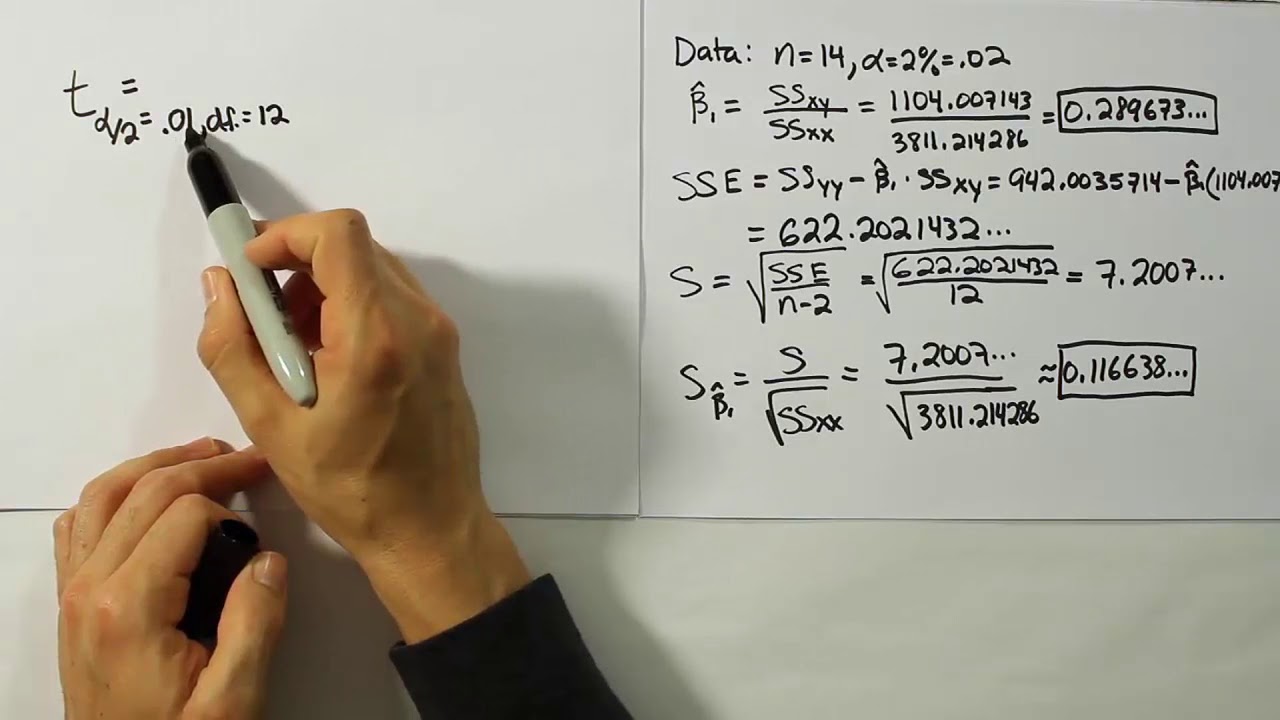 t α/2 = .01, d.f. = 12 =
Data: n=14, α=2%=.02
β̂₁ = SSxy/SSxx = 1104.007143/3811.214286 = 0.289673...
SSE = SSyy - β̂₁ · SSxy = 942.0035714 - β̂₁(1104.007
= 622.2021432...
S = √(SSE/n-2) = √(622.2021432/12) = 7.2007...
S β̂₁ = S/√SSxx = 7.2007.../√3811.214286 ≈ 0.116638...